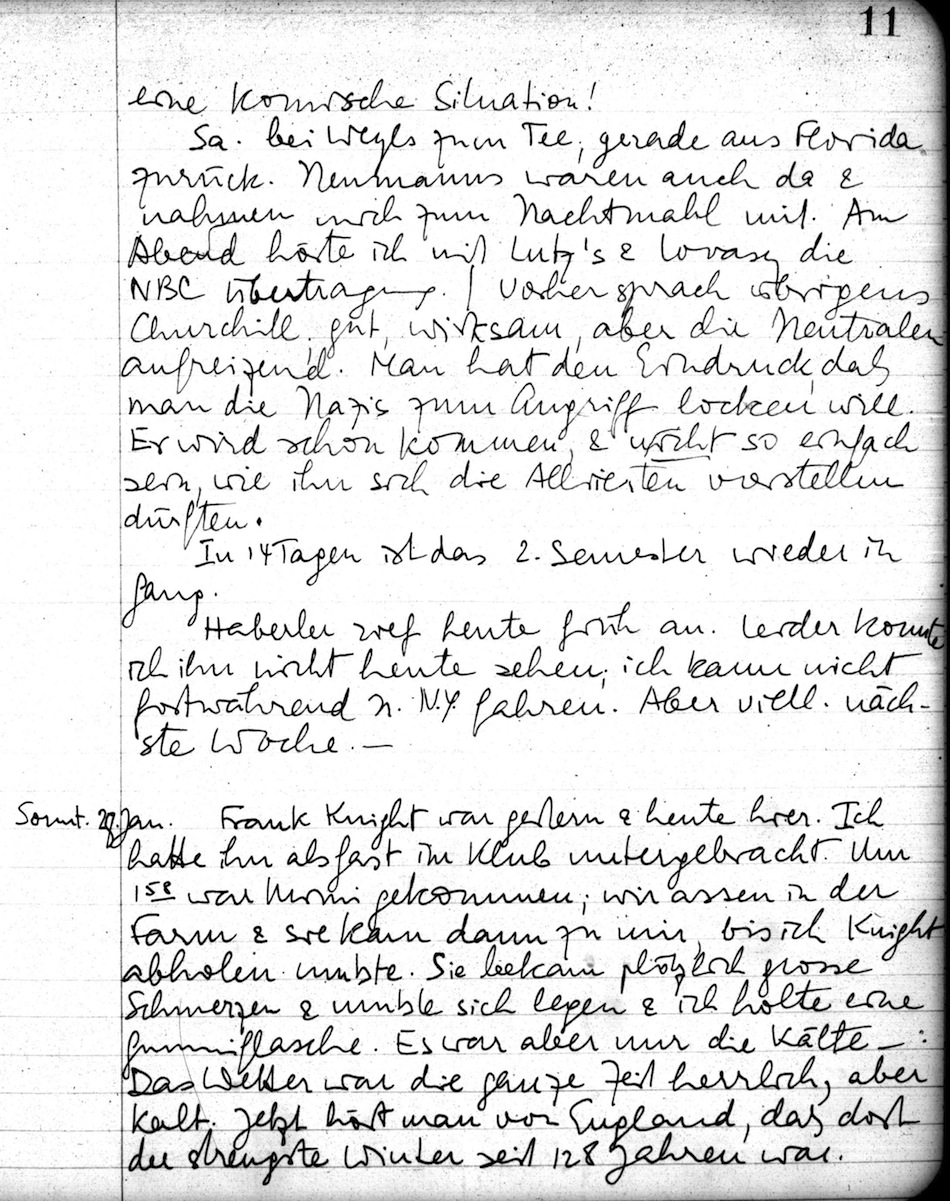 11
eine komische Situation!
Sa. bei Weyls zum Tee, gerade aus Florida
zurück. Neumanns waren auch da &
nahmen mich zum Nachtmahl mit. Am
Abend hörte ich mit Lutz's & Lovasy die
NBC Übertragung. | Vorher sprach übrigens
Churchill, gut, wirksam, aber die Neutralen
aufreizend. Man hat den Eindruck, daß
man die Nazis zum Angriff locken will.
Er wird schon kommen, & nicht so einfach
sein, wie ihn sich die Alliierten vorstellen
dürften.
In 14 Tagen ist das 2. Semester wieder in
Gang.
Haberler rief heute früh an. Leider konnte
ich ihn nicht heute sehen; ich kann nicht
fortwährend n. N.Y. fahren. Aber viell. näch-
ste Woche. —
Sonnt. Jan. Frank Knight war gestern & heute hier. Ich
hatte ihn als Gast im Klub untergebracht. Um
1 58 war Mimi gekommen; wir assen in der
Farm & sie kam dann zu mir, bis ich Knight
abholen mußte. Sie bekam plötzlich grosse
Schmerzen & mußte sich legen & ich holte eine
Gummiflasche. Es war aber nur die Kälte —:
Das Wetter war die ganze Zeit herrlich, aber
kalt. Jetzt hört man von England, daß dort
der strengste Winter seit 128 Jahren war.